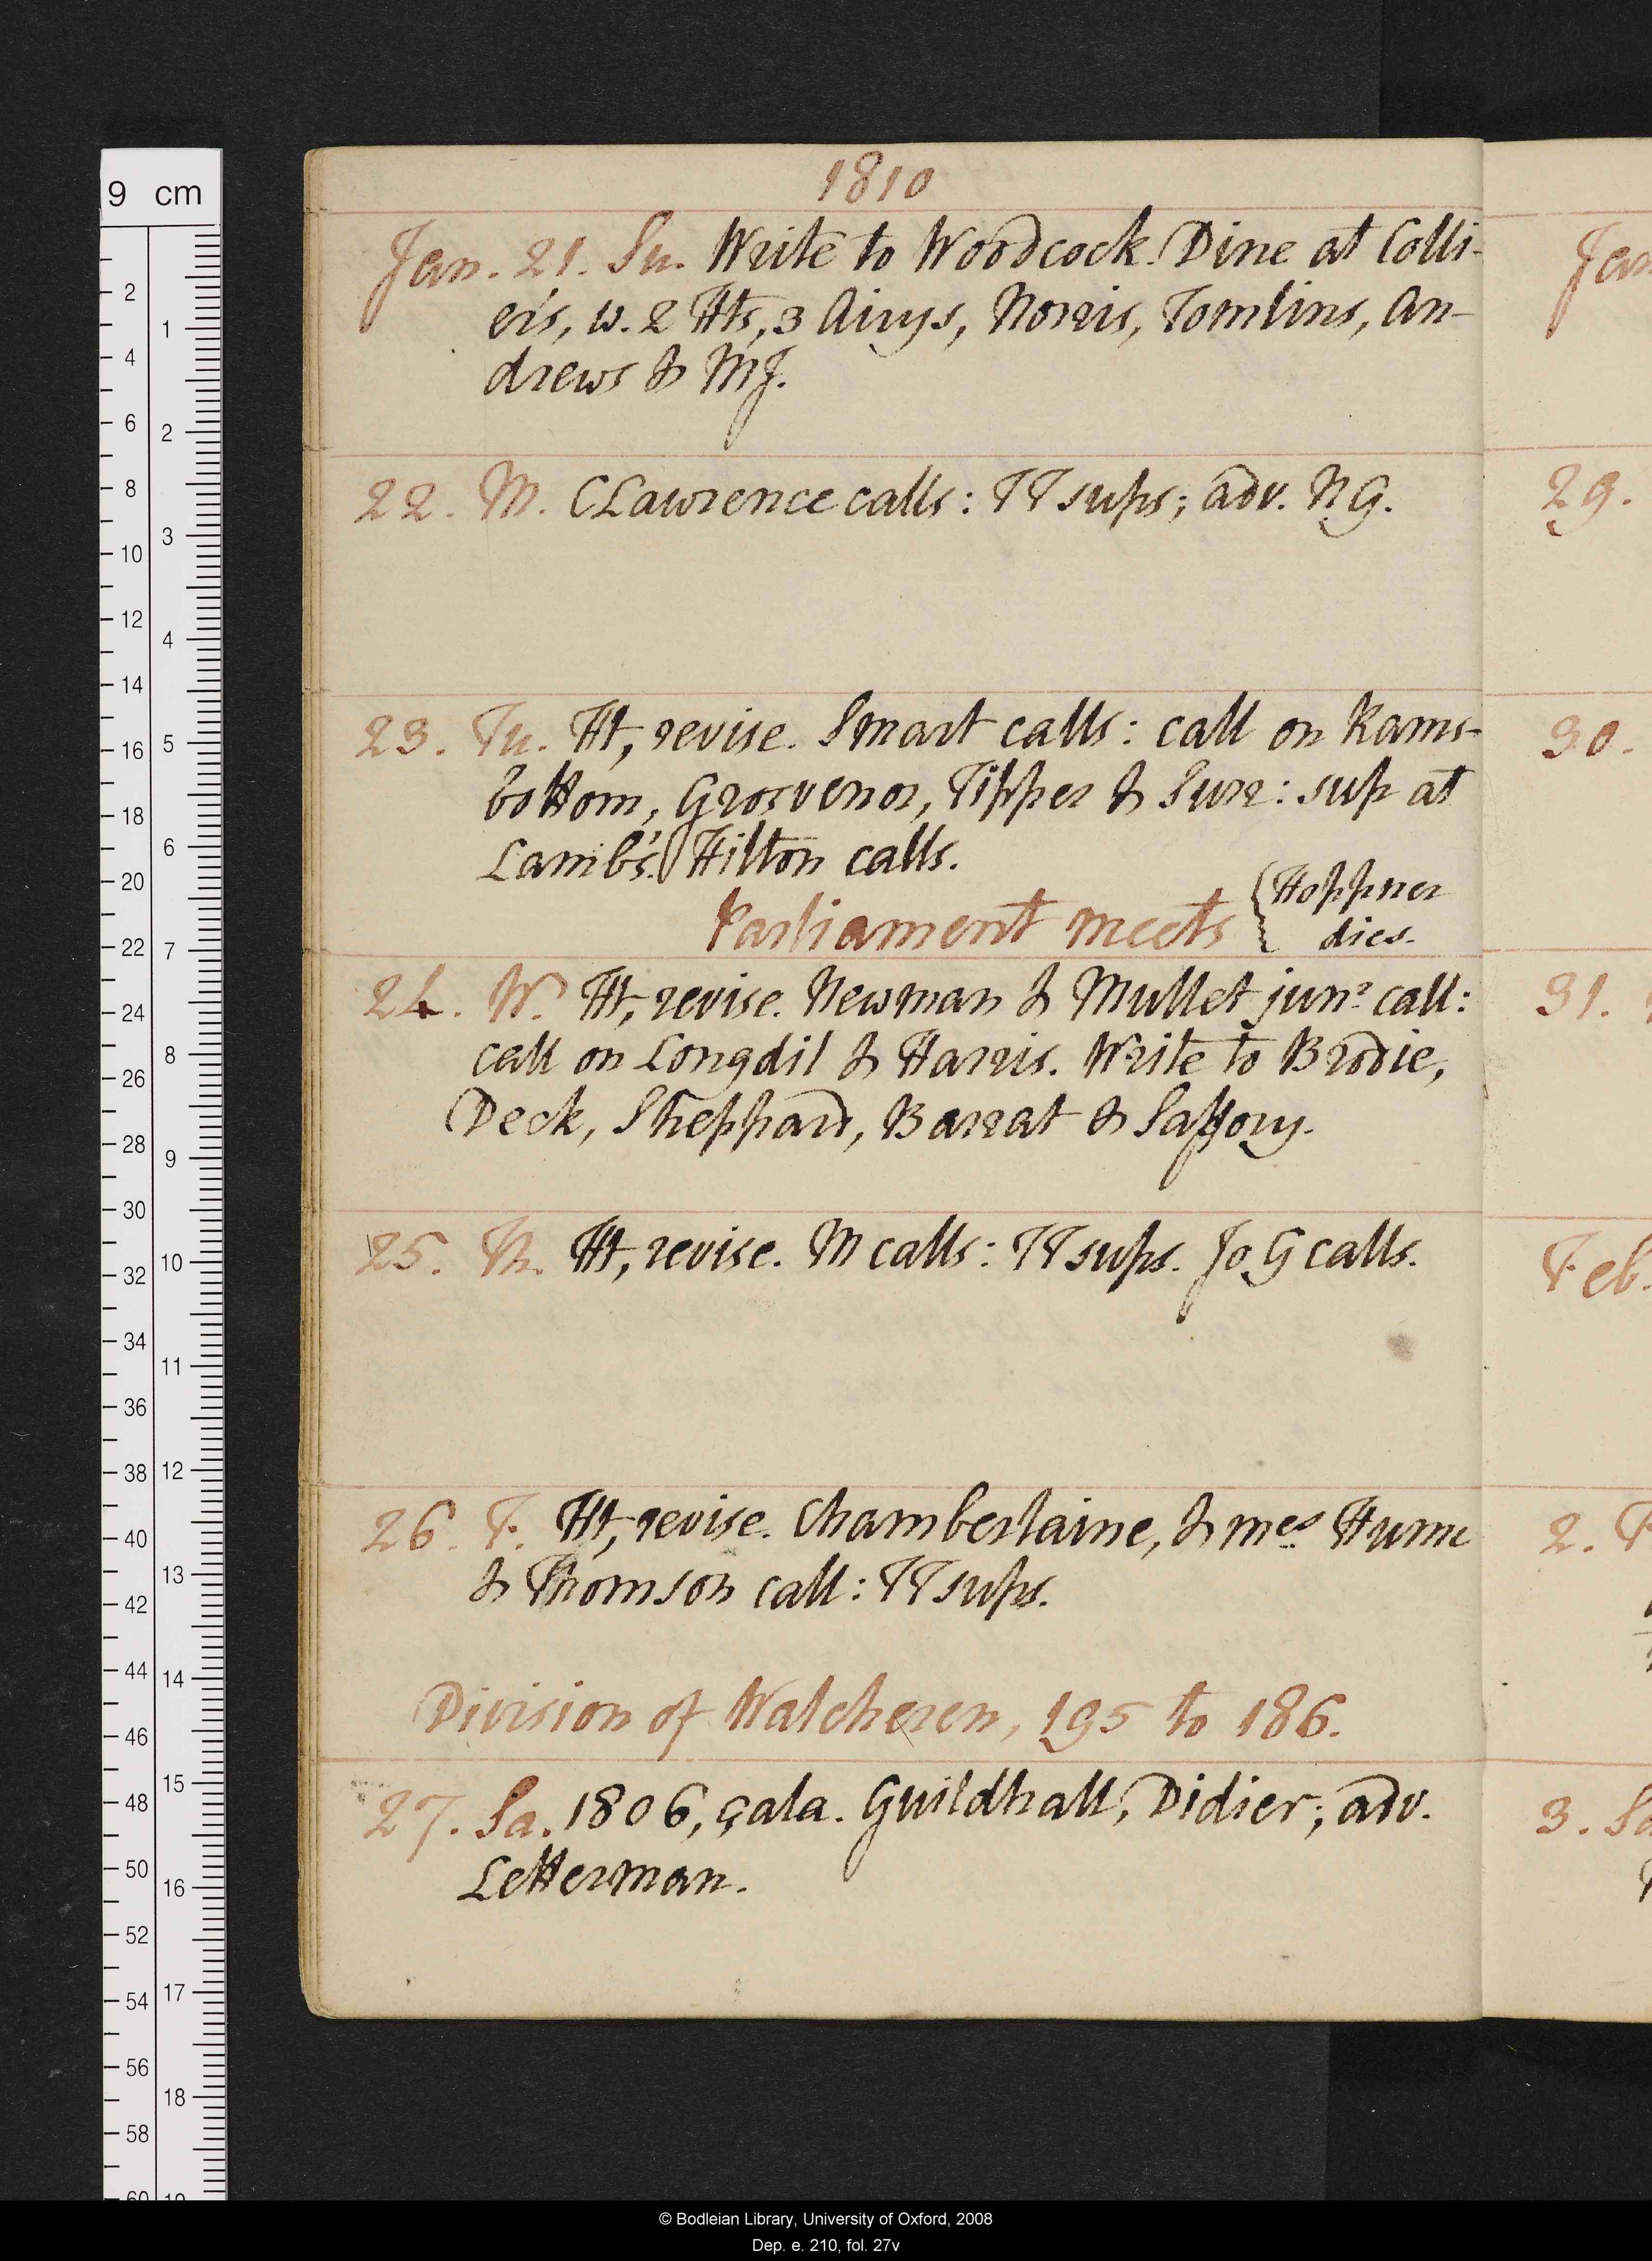 1810
Jan. 21. Su. Write to Woodcock. Dine at Colli-
er's, w. 2 Hts, 3 Airys, Norris, Tomlins, An-
drews & MJ.
22. M. CLawrence calls: TT sups; adv. NG.
23. Tu. Ht, revise. Smart calls: call on Rams-
bottom, Grosvenor, Tipper & Surr: sup at
Lamb's. Hilton calls.
Parliament meets { Hoppner
dies.
24. W. Ht, revise. Newman & Mullet junr. call:
call on Longdil & Harris. Write to Brodie,
Deck, Sheppard, Barrat & Saffory.
25. Th. Ht, revise. M calls: TT sups. Jo G calls.
26. F. Ht, revise. Chamberlaine, & mes Hume
& Thomson call: TT sups.
Division of Walcheren, 195 to 186.
27. Sa. 1806, çala. Guildhall, Didier; adv.
Letterman.
Jan
29.
30.
31.
Feb.
2. F
3. Sa
9 cm
2
4
6
8
10
12
14
16
18
20
22
24
26
28
30
32
34
36
38
40
42
44
46
48
50
52
54
56
58
60
1
2
3
4
5
6
7
8
9
10
11
12
13
14
15
16
17
18
19
© Bodleian Library, University of Oxford, 2008
Dep. e. 210, fol. 27v